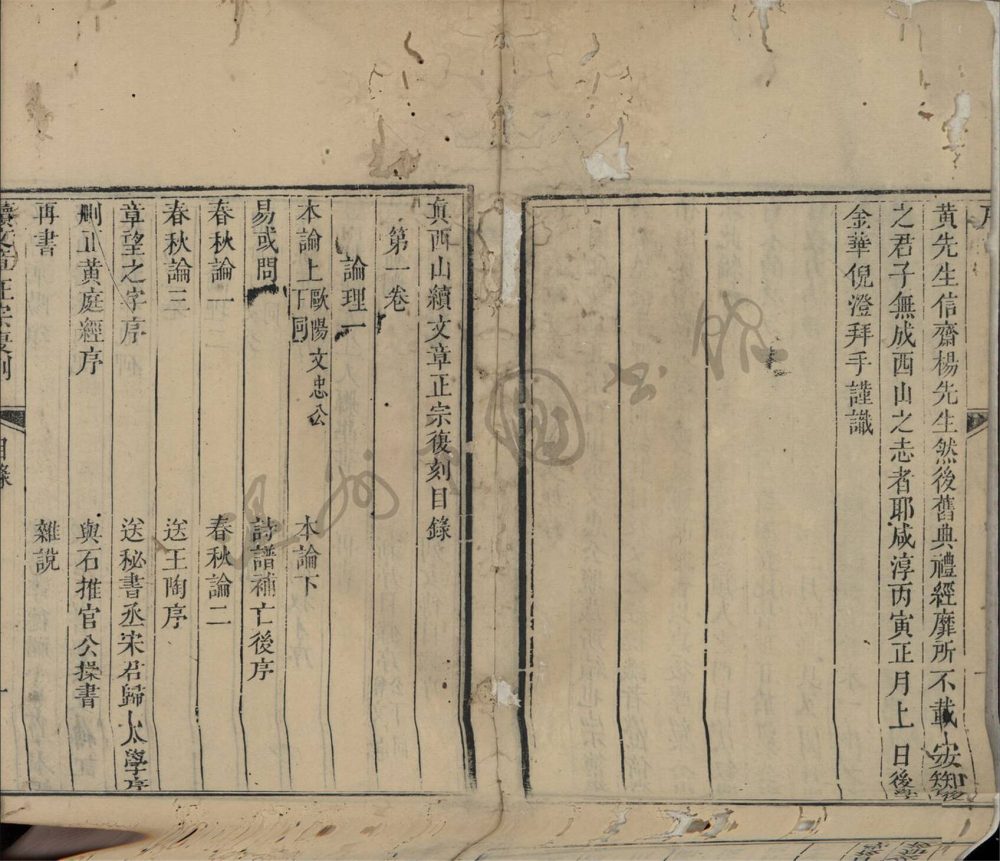 序
黄先生信齋楊先生然後舊典禮經靡所不載安知後
之君子無成西山之志者耶咸淳丙寅正月上日後學
金華倪澄拜手謹識
真西山續文章正宗復刻目錄
第一卷
論理一
本論上歐陽文忠公下同 本論下
易或問 詩譜補亡後序
春秋論一 春秋論二
春秋論三 送王陶序
章望之字序 送秘書丞宋君歸太學序
刪正黃庭經序 與石推官公操書
再書 雜說
續文章正宗復刻 目錄 一